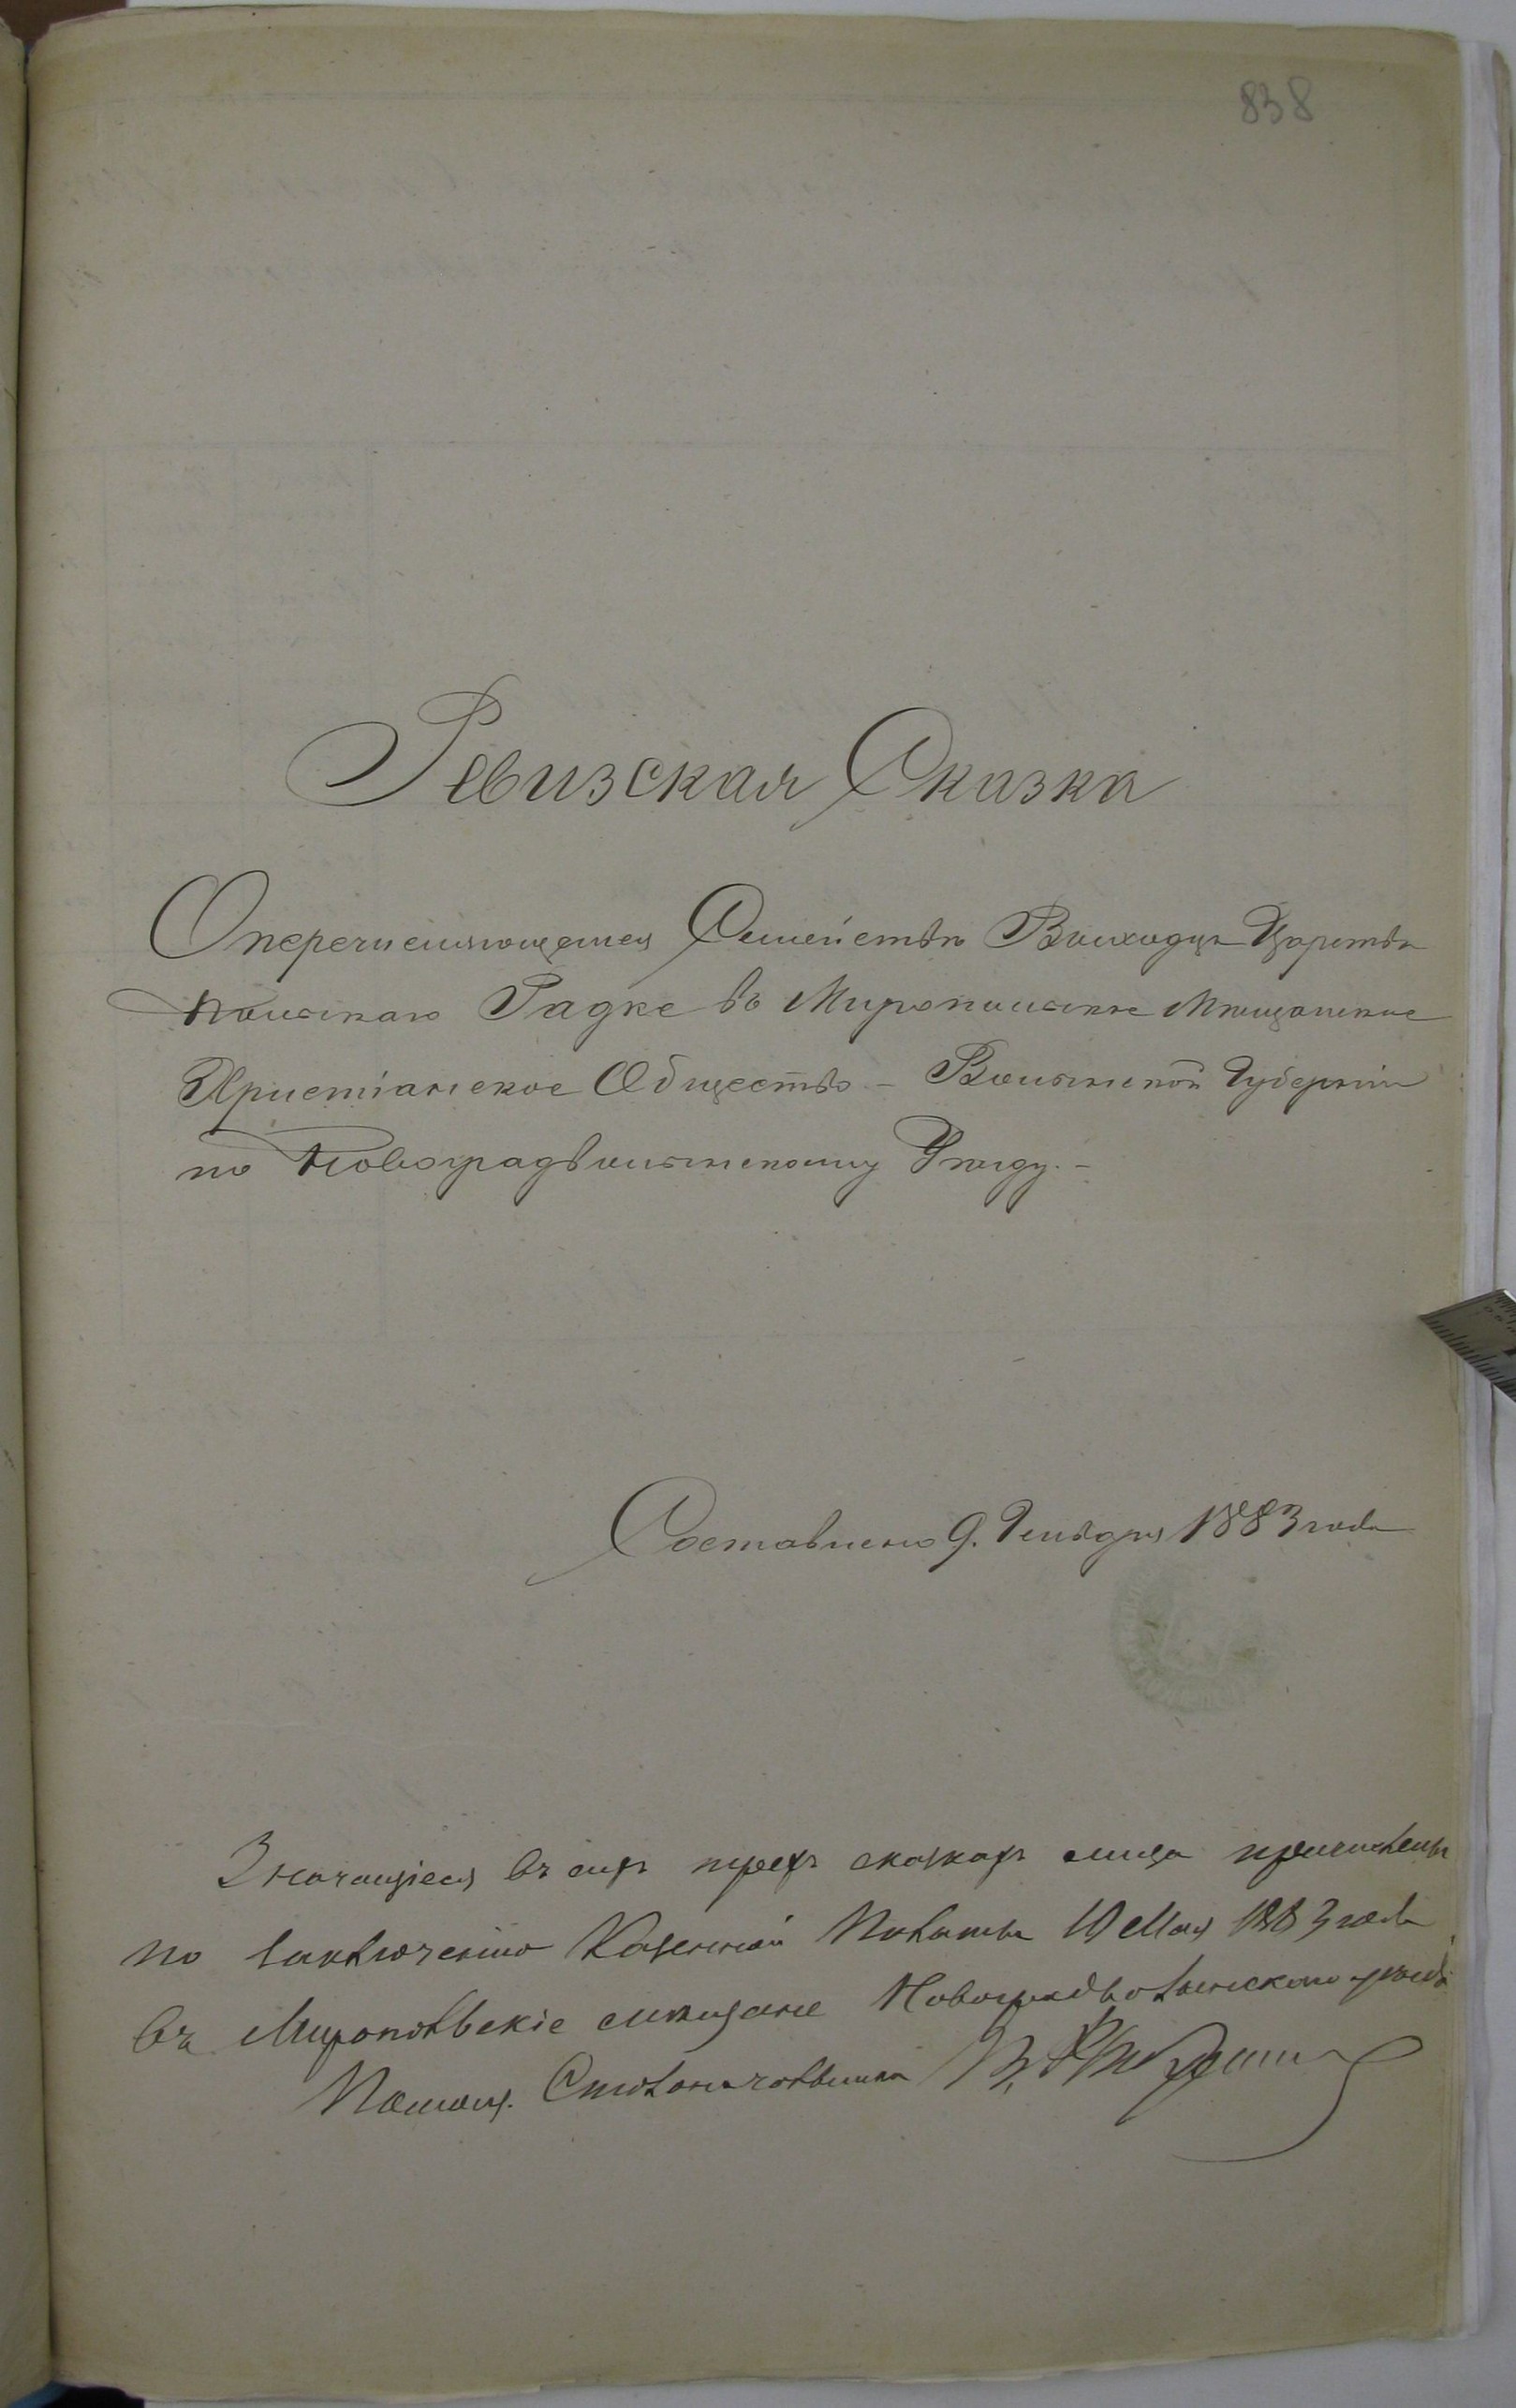 838
Ревизская Сказка
О перечисляющемся Семействѣ Выходца Царства
Польскаго Радке въ Миропольское Мѣщанское
Христіанское Общество - Волынской Губерніи
по Новоградволынскому Уѣзду. -
Составлено 9. 1883 года
Значащіеся въ сихъ трехъ сказкахъ лица причислены
по заключенію Казенной Палаты 10 Мая 1883 года
въ Миропольскіе мѣщане Новоградволынскаго уѣзда
Помощ. Столоначальника